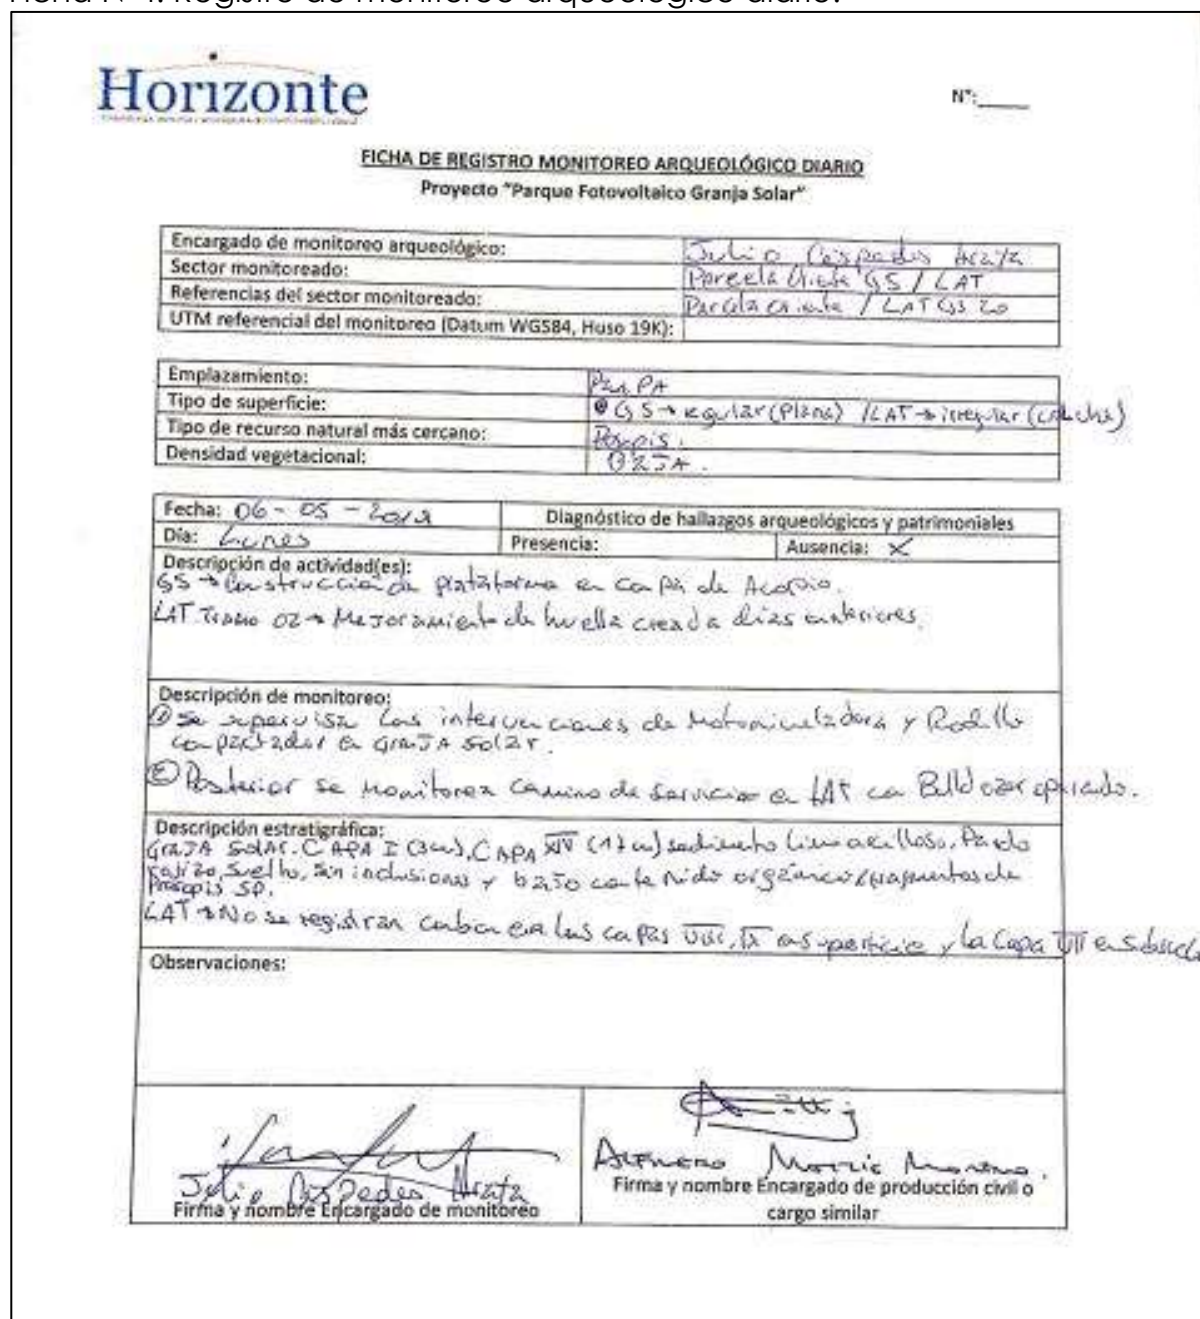 Ficha N°1: Registro de monitoreo arqueológico diario.
Horizonte
N°:____
FICHA DE REGISTRO MONITOREO ARQUEOLÓGICO DIARIO
Proyecto "Parque Fotovoltaico Granja Solar"
Encargado de monitoreo arqueológico: Julio Céspedes Arata
Sector monitoreado: Parcela Oriente GS / LAT
Referencias del sector monitoreado: Parcela Oriente / LAT GS
UTM referencial del monitoreo (Datum WGS84, Huso 19K):
Emplazamiento: PamPA
Tipo de superficie: GS → regular (Plana) / LAT → irregular
Tipo de recurso natural más cercano:
Densidad vegetacional: BAJA.
Fecha: 06-05-2019 Diagnóstico de hallazgos arqueológicos y patrimoniales
Día: Lunes Presencia: Ausencia: X
Descripción de actividad(es):
GS → Construcción de plataforma en de Acopio.
LAT Tramo 02 → Mejoramiento de huella creada días anteriores.
Descripción de monitoreo:
① Se supervisa las intervenciones de Motoniveladora y Rodillo
compactador en GranJA Solar.
② Posterior se monitorea camino de servicio en LAT con Bulldozer
Descripción estratigráfica:
GranJA Solar. CAPA I (3cm), CAPA XIV (17cm) sedimento limo arcilloso, Pardo
rojizo, suelto, sin inclusiones y bajo contenido orgánico fragmentos de
Prosopis SP.
LAT → No se registran las capas VIII, IX en superficie y la Capa en
Observaciones:
Julio Céspedes Arata
Firma y nombre Encargado de monitoreo
Moreno.
Firma y nombre Encargado de producción civil o
cargo similar